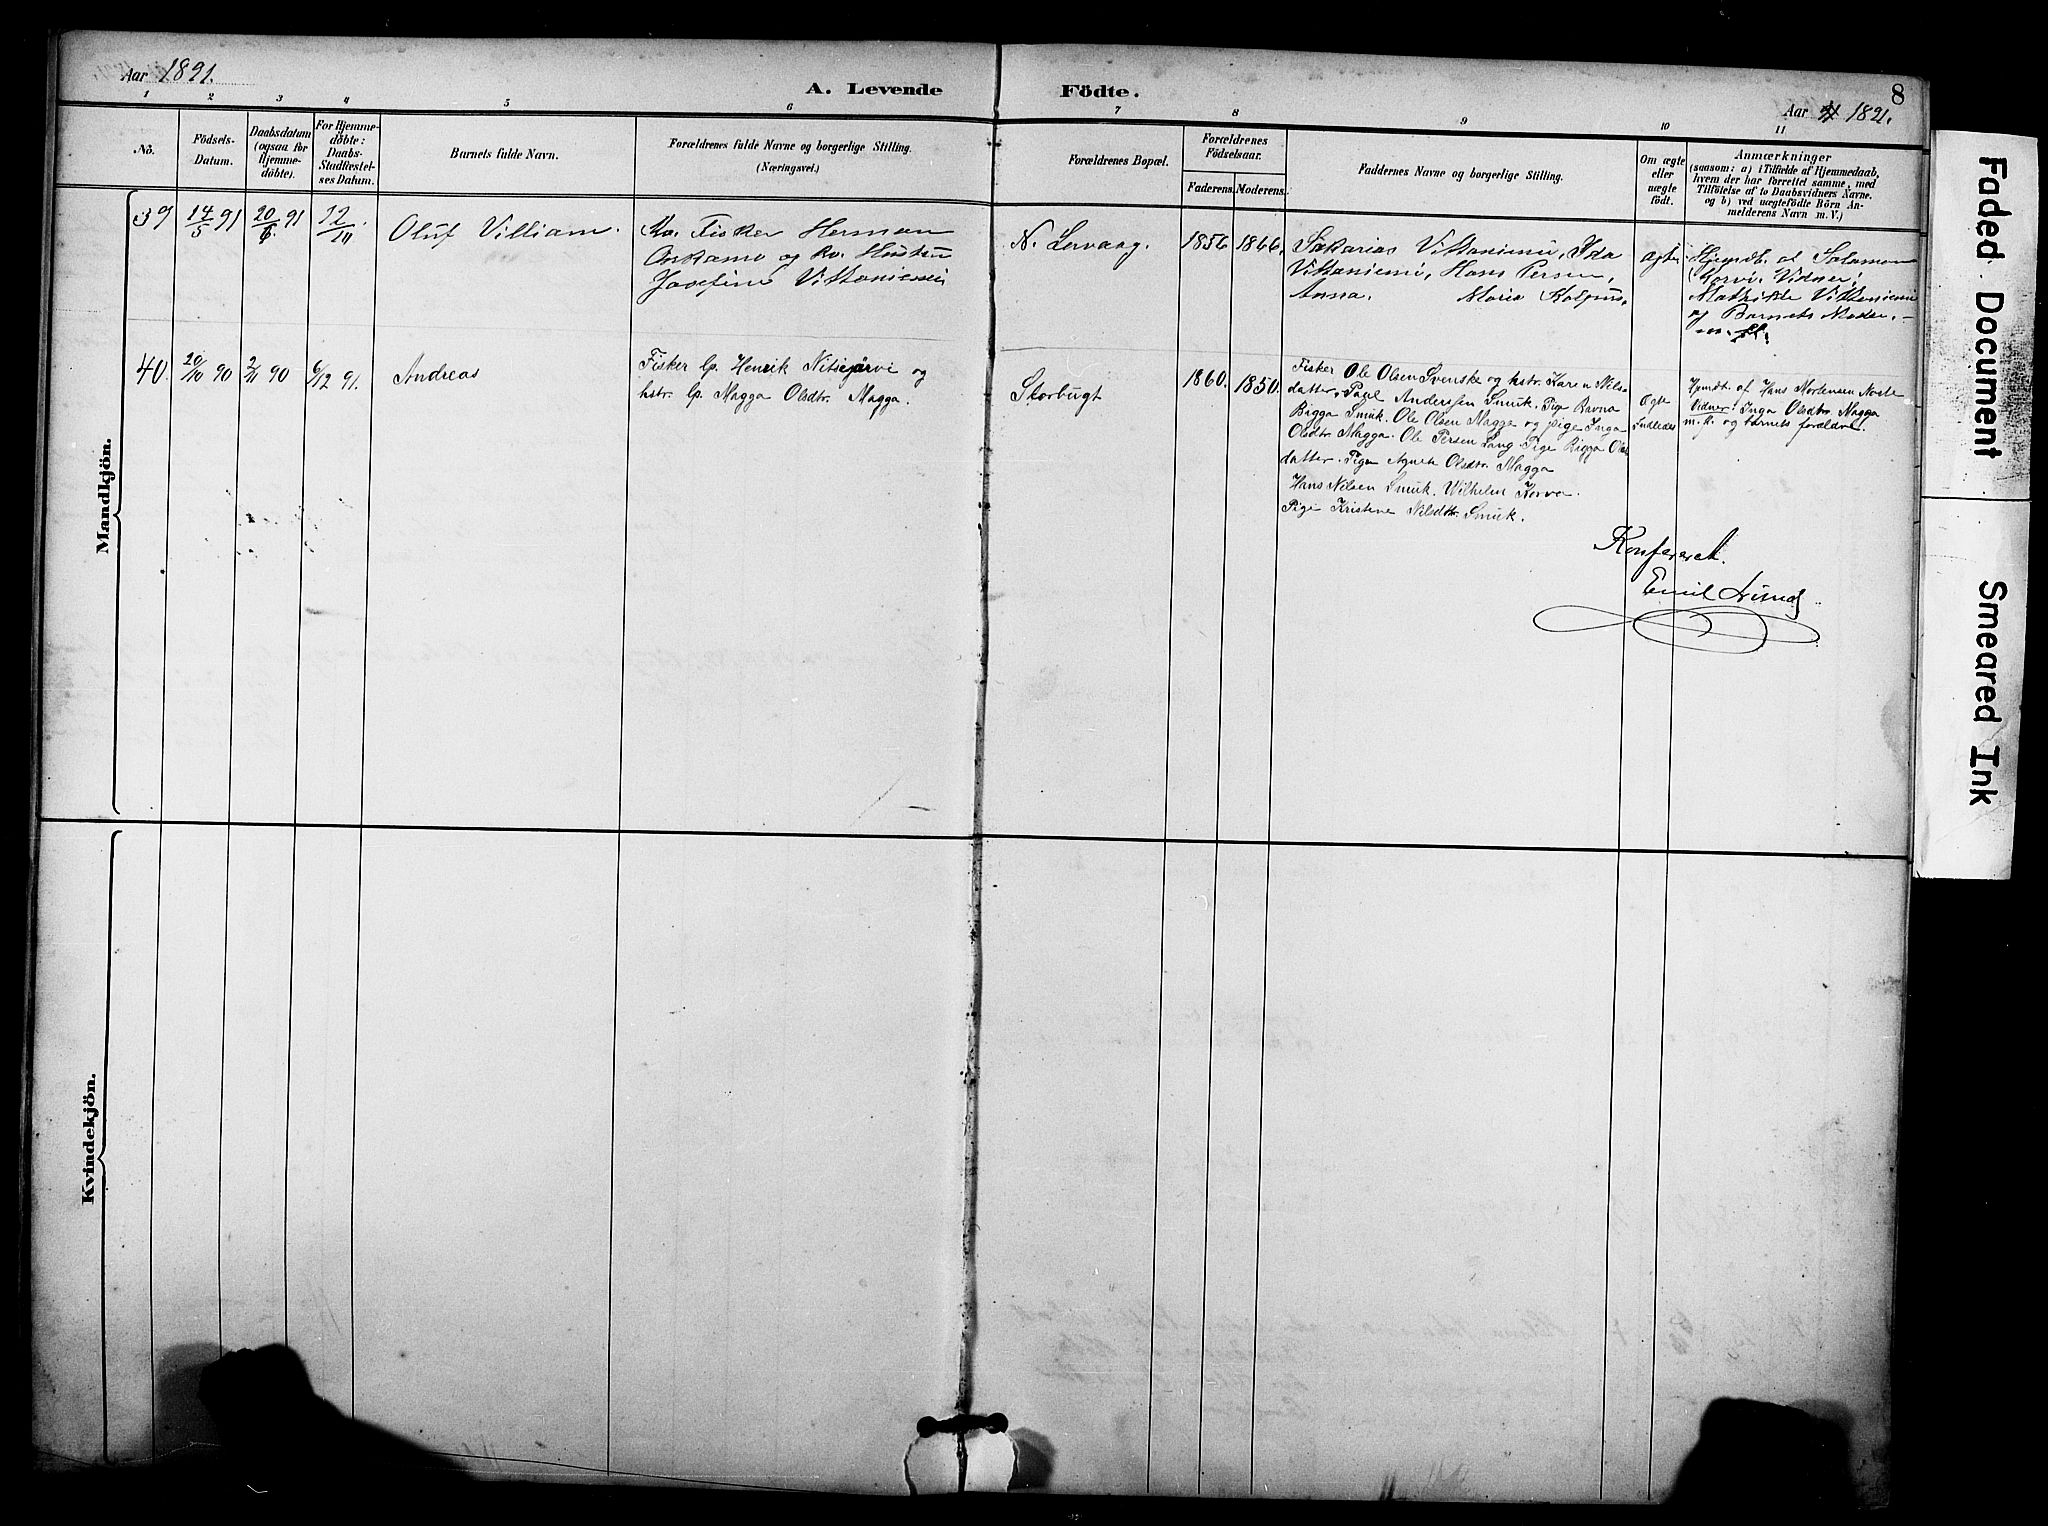 Aar 1891.
A. Levende Födte.
8
Aar 1891.
1 2 3 4 5 6 7 8 9 10 11
No.
Födsels-
Datum.
Daabsdatum
(ogsaa for
Hjemme-
döbte).
For Hjemme-
döbte:
Daabs-
Stadfæstel-
ses Datum.
Barnets fulde Navn.
Forældrenes fulde Navne og borgerlige Stilling.
(Næringsvei.)
Forældrenes Bopæl.
Forældrenes
Födselsaar.
Faderens. Moderens.
Faddernes Navne og borgerlige Stilling.
Om ægte
eller
uægte
født.
Anmærkninger
(saasom: a) i Tilfælde af Hjemmedaab,
hvem der har forrettet samme, med
Tilföielse af to Daabsvidners Navne.
og b) ved uægtefödte Börn An-
melderens Navn m. V.)
Mandkjön.
39
14/5 91
20/6 91
12/11
Oluf Villiam.
Kv. Fisker Herman
Onkamo og kv. Hustru
Josefine Vittaniemi
N. Lervaag.
1856
1866.
Sakarias Vittaniemi, Ida
Vittaniemi, Hans Persen,
Anna. Maria Kolpus.
ægte
Hjemdt. af Salamon
Korvi. Vidner:
Mathilde Vittaniemi
og Barnets Moder.
40.
20/10 90
2/11 90
6/12 91.
Andreas
Fisker lp. Henrik Nitsijärvi og
hstr. lp. Magga Olsdtr. Magga.
Storbugt
1860.
1850.
Fisker Ole Olsen Svenske og hstr. Karen Nils-
datter. Paul Anderssen Smuk. Pige Ravna
Bigga Smuk. Ole Olsen Magga og pige Inga
Olsdtr Magga. Ole Persen Lang Pige Bigga Ols-
datter. Pige Agnete Olsdtr. Magga
Hans Nilsen Smuk. Wilhelm Korva.
Pige Kristine Nilsdtr. Smuk.
Ægte
Hjemdt. af Hans Mortensen Noste
Vidner: Inga Olsdtr. Magga
m. fl. og barnets forældre.
Konfereret.
Emil Lund
Kvindekjön.
Faded Document
Smeared Ink